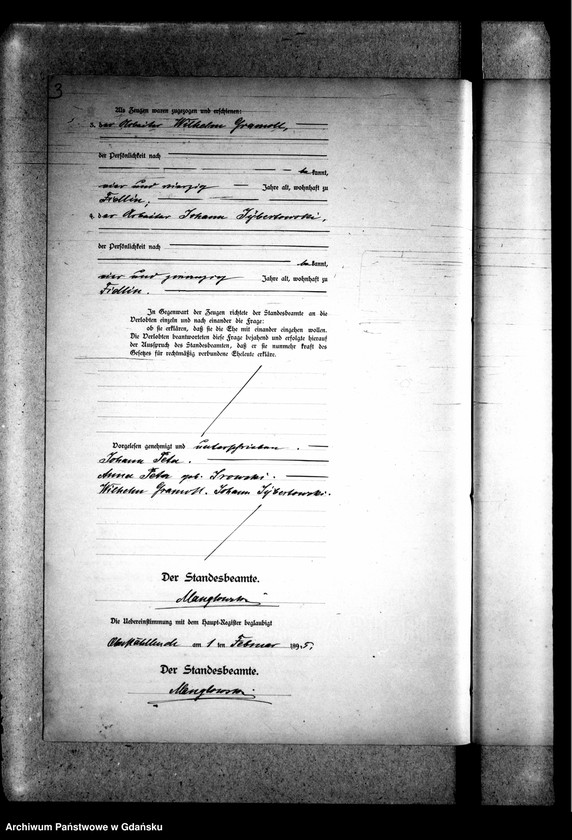 3
Als Zeugen waren zugezogen und erschienen:
3. der Arbeiter Wilhelm Gramoll,
der Persönlichkeit nach
bekannt,
vier und vierzig Jahre alt, wohnhaft zu
Fidllin;
4. der Arbeiter Johann
der Persönlichkeit nach
bekannt,
vier und zwanzig Jahre alt, wohnhaft zu
Fidllin.
In Gegenwart der Zeugen richtete der Standesbeamte an die
Verlobten einzeln und nach einander die Frage:
ob sie erklären, daß sie die Ehe mit einander eingehen wollen.
Die Verlobten beantworteten diese Frage bejahend und erfolgte hierauf
der Ausspruch des Standesbeamten, daß er sie nunmehr kraft des
Gesetzes für rechtmäßig verbundene Eheleute erkläre.
Vorgelesen, genehmigt und unterschrieben.
Johann Peta.
Anna Peta geb.
Wilhelm Gramoll. Johann
Der Standesbeamte.
Manglowski
Die Uebereinstimmung mit dem Haupt-Register beglaubigt
am 1 ten Februar 1895.
Der Standesbeamte.
Manglowski.
Archiwum Państwowe w Gdańsku